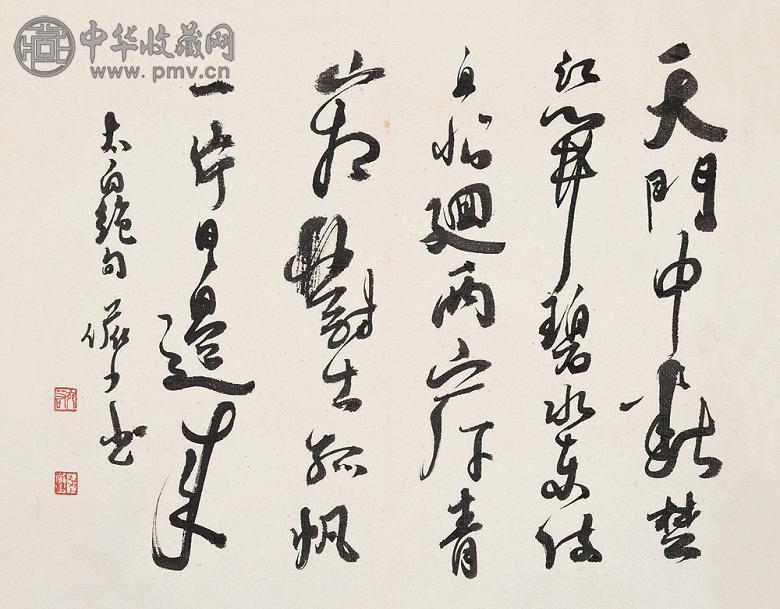 中华收藏网
www.pmv.cn
天門中断楚
江開碧水東流
至此廻兩岸青
山相對出孤帆
一片日邊來
太白絕句 儼少書